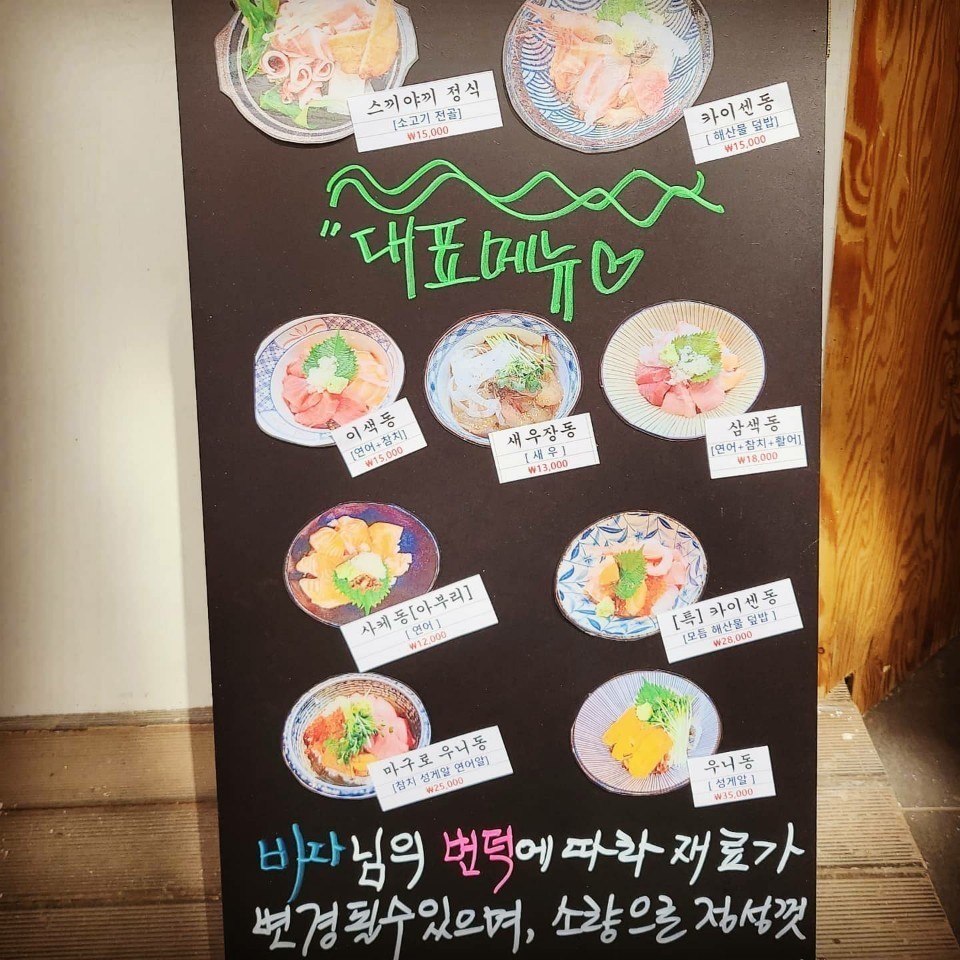 스끼야끼 정식
[소고기 전골]
₩15,000
카이센동
[ 해산물 덮밥]
₩15,000
"대표메뉴♡
이색동
[연어+참치]
₩15,000
새우장동
[ 새우 ]
₩13,000
삼색동
[연어+참치+활어]
₩18,000
사케동[아부리]
[ 연어 ]
₩12,000
[특] 카이센동
[모듬 해산물 덮밥 ]
₩28,000
마구로 우니동
[참치 성게알 연어알]
₩25,000
우니동
[ 성게알 ]
₩35,000
바다님의 변덕에 따라 재료가
변경될수있으며, 소량으로 정성껏